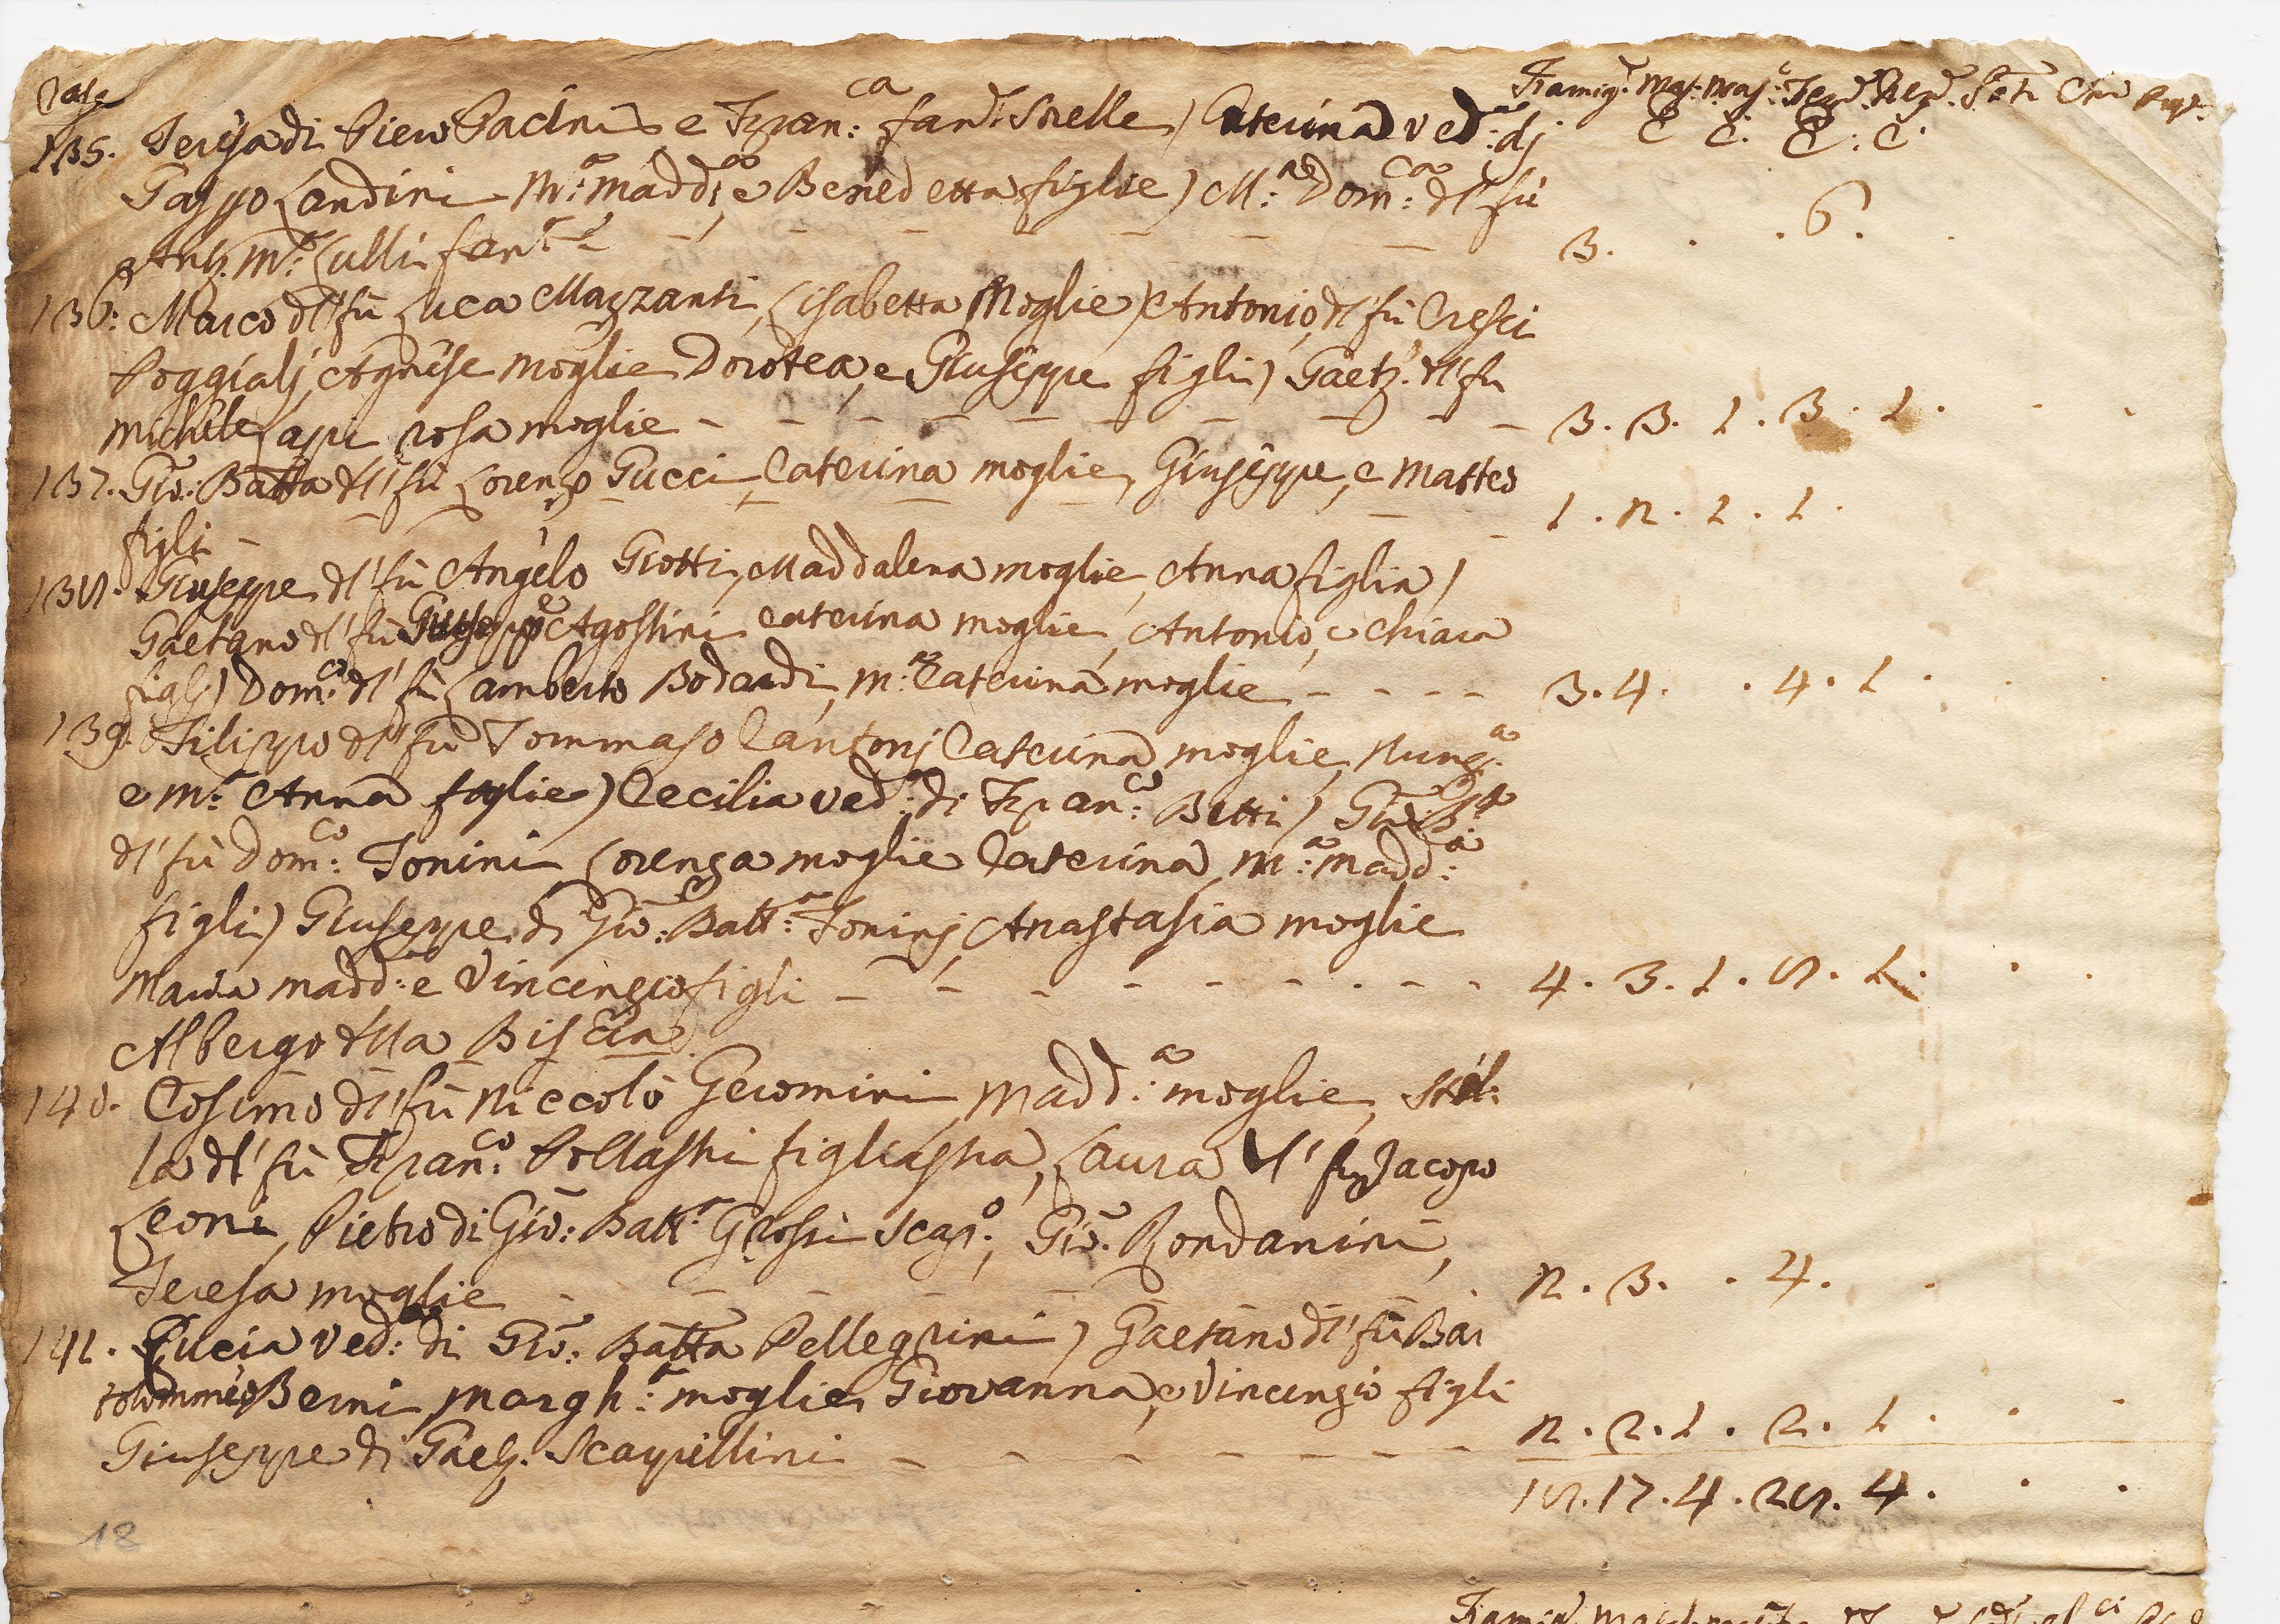 Case Famig: Mas: Mas: Fem: Fem: Preti Chi
C C. C. C.
135. Teresa di Piero Pacini e Fran:ca fan: Sorelle) Caterina ved:a dj
Gaspo Landini M:a Madd:a e Benedetta figlie) M:a Dom:ca dl' fu
Ant.o M:a Lulli fan: - - - - - - - 3. . . 6. .
136: Marco dl' fu Luca Mazzanti, Lisabetta Moglie) Antonio dl' fu Cresci
Poggialj, Agnese moglie Dorotea, e Giuseppe figli) Gaet.o dl' fu
Michele Lapi rosa moglie - - - - - - - - - 3. 3. 1. 3. 1. . .
137. Gio: Batta dl' fu Lorenzo Pucci, Caterina moglie, Giuseppe, e Matteo
figli - - - - - - 1. 2. 1. 1.
138. Giuseppe dl' fu Angelo Giotti, Maddalena moglie, Anna figlia)
Gaetano dl' fu Giuseppe Agostini Caterina moglie, Antonio, e Chiara
figlj) Dom:co dl' fu Lamberto Bodardi, M:a Caterina moglie - - - - 3. 4. . 4. 1. . .
139. Filippo dl' fu Tommaso Cantonj Caterina moglie, Nunz:a
e M:a Anna figlie) Cecilia ved:a di Fran:co Betti) Gio: Batta
dl' fu Dom:co Tonini Lorenza moglie Caterina, M:a Madd:a
figli) Giuseppe di Gio: Batt:a Toninj, Anastasia moglie
Maria Madd:a e Vincenzio figli - - - - - - - - - 4. 3. 1. 8. 1. . .
Albergo dlla Biscia
140. Cosimo dl' fu Niccolò Geromini Madd:a moglie, Stel:
la dl' fu Fran:co Pollastri figliastra, Laura dl' fu Jacopo
Leoni, Pietro di Gio: Batt:a Grossi Scap:o, Gio: Rondanini,
Teresa moglie - - - - - - 2. 3. . 4. .
141. Lucia ved:a di Gio: Batta Pellegrini) Gaetano dl' fu Bar
tolommeo Berni Margh:a moglie Giovanna, e Vincenzio figli
Giuseppe di Gaet.o Scappellini - - - - - - - 2. 2. 1. 2. 1. . .
18. 17. 4. 28. 4. . .
18